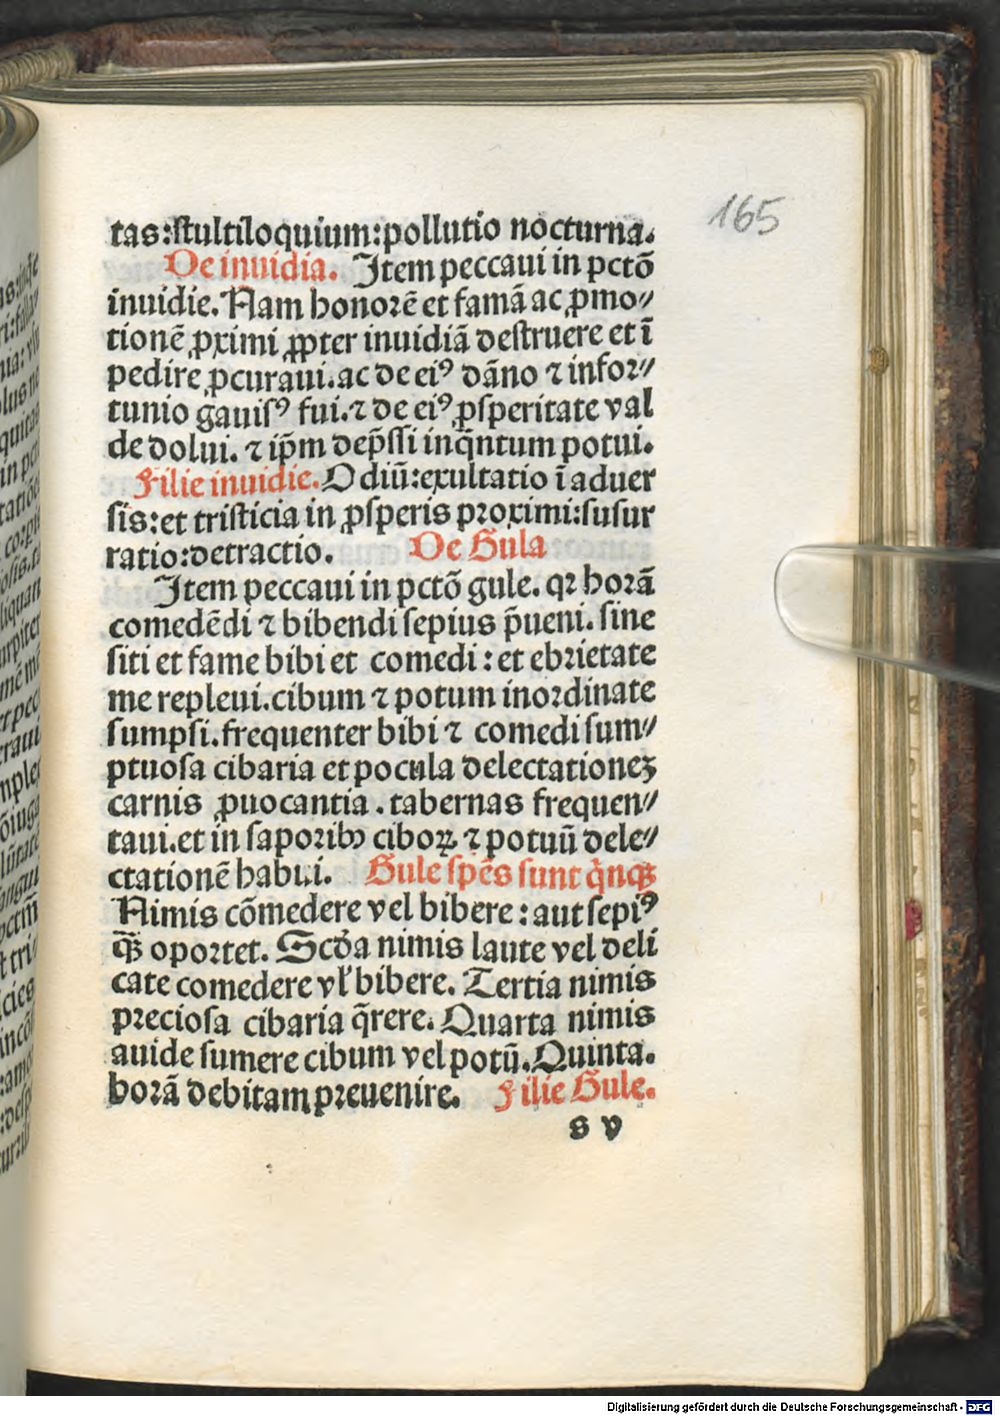 165
tas:ſtultiloquium:pollutio nocturna.
De inuidia. Item peccaui in pctō
inuidie. Nam honorē et famā ac ꝓmo⸗
tionē ꝓximi ꝓpter inuidiā deſtruere et ī
pedire ꝓcuraui. ac de eiꝰ dāno ⁊ infor⸗
tunio gauiſꝰ fui. ⁊ de eiꝰ ꝓſperitate val
de dolui. ⁊ ip̄m dep̄ſſi inq̄ntum potui.
Filie inuidie. Odiū: exultatio ī aduer
ſis: et triſticia in ꝓſperis proximi: ſuſur
ratio: detractio. De Gula
Item peccaui in pctō gule. qꝛ horā
comedēdi ⁊ bibendi ſepius p̄ueni. ſine
ſiti et fame bibi et comedi: et ebrietate
me repleui. cibum ⁊ potum inordinate
ſumpſi. frequenter bibi ⁊ comedi ſum⸗
ptuoſa cibaria et pocula delectationeꝫ
carnis ꝓuocantia. tabernas frequen⸗
taui. et in ſaporibꝰ ciboꝝ ⁊ potuū dele⸗
ctationē habui. Gule ſpēs ſunt q̇nqꝫ
Nimis cōmedere vel bibere: aut ſepiꝰ
q̄ꝫ oportet. Scd̓a nimis laute vel deli
cate comedere vl̓ bibere. Tertia nimis
precioſa cibaria q̄rere. Quarta nimis
auide ſumere cibum vel potū. Quinta.
horā debitam preuenire. Filie Gule.
s v
Digitalisierung gefördert durch die Deutsche Forschungsgemeinschaft - DFG